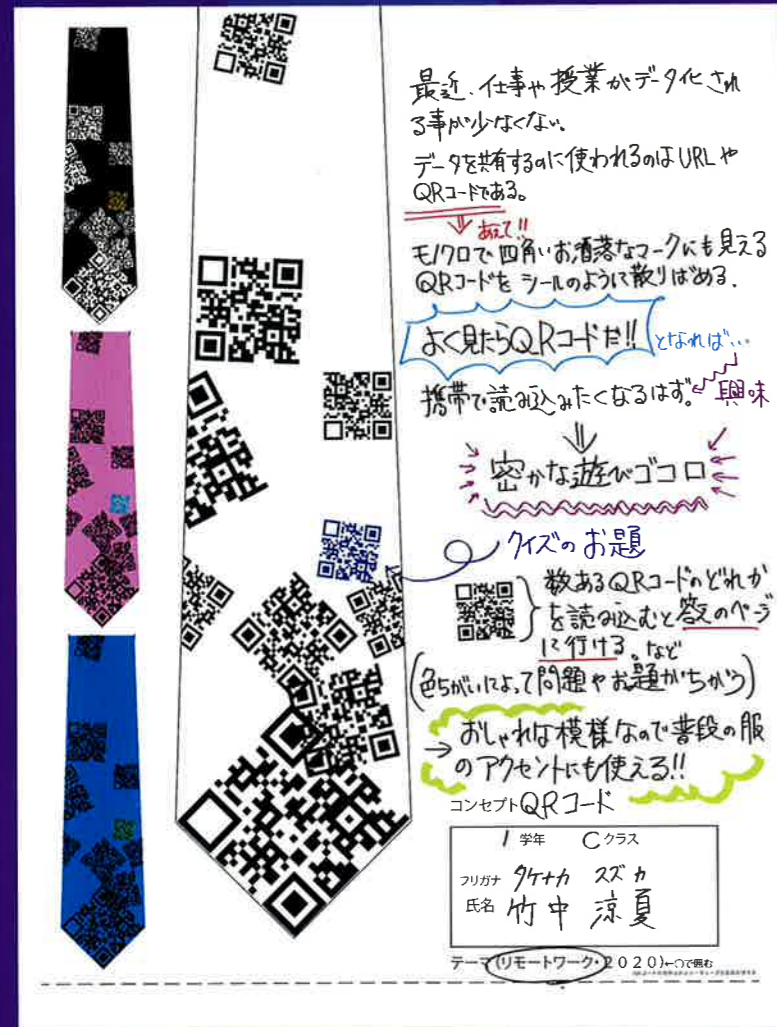 最近、仕事や授業がデータ化され
る事が少なくない。
データを共有するのに使われるのはURLや
QRコードである。
⇓あえて!!
モノクロで四角いお洒落なマークにも見える
QRコードをシールのように散りばめる.
よく見たらQRコードだ!!となれば...
携帯で読み込みたくなるはず。興味
⇓
密かな遊びゴコロ
クイズのお題
数あるQRコードのどれか
を読み込むと答えのページ
に行ける。など
(色ちがいによって問題やお題がちがう)
→おしゃれな模様なので普段の服
のアクセントにも使える!!
コンセプトQRコード
1 学年 Cクラス
フリガナ タケナカ スズカ
氏名 竹中 涼夏
テーマ(リモートワーク・2020)←○で囲む